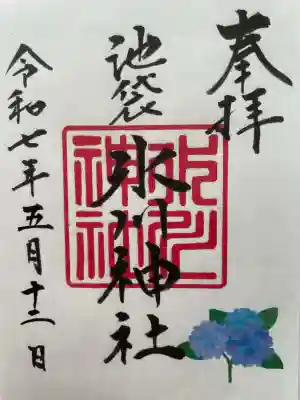 奉拝
池袋氷川神社
氷川神社
令和七年五月十二日